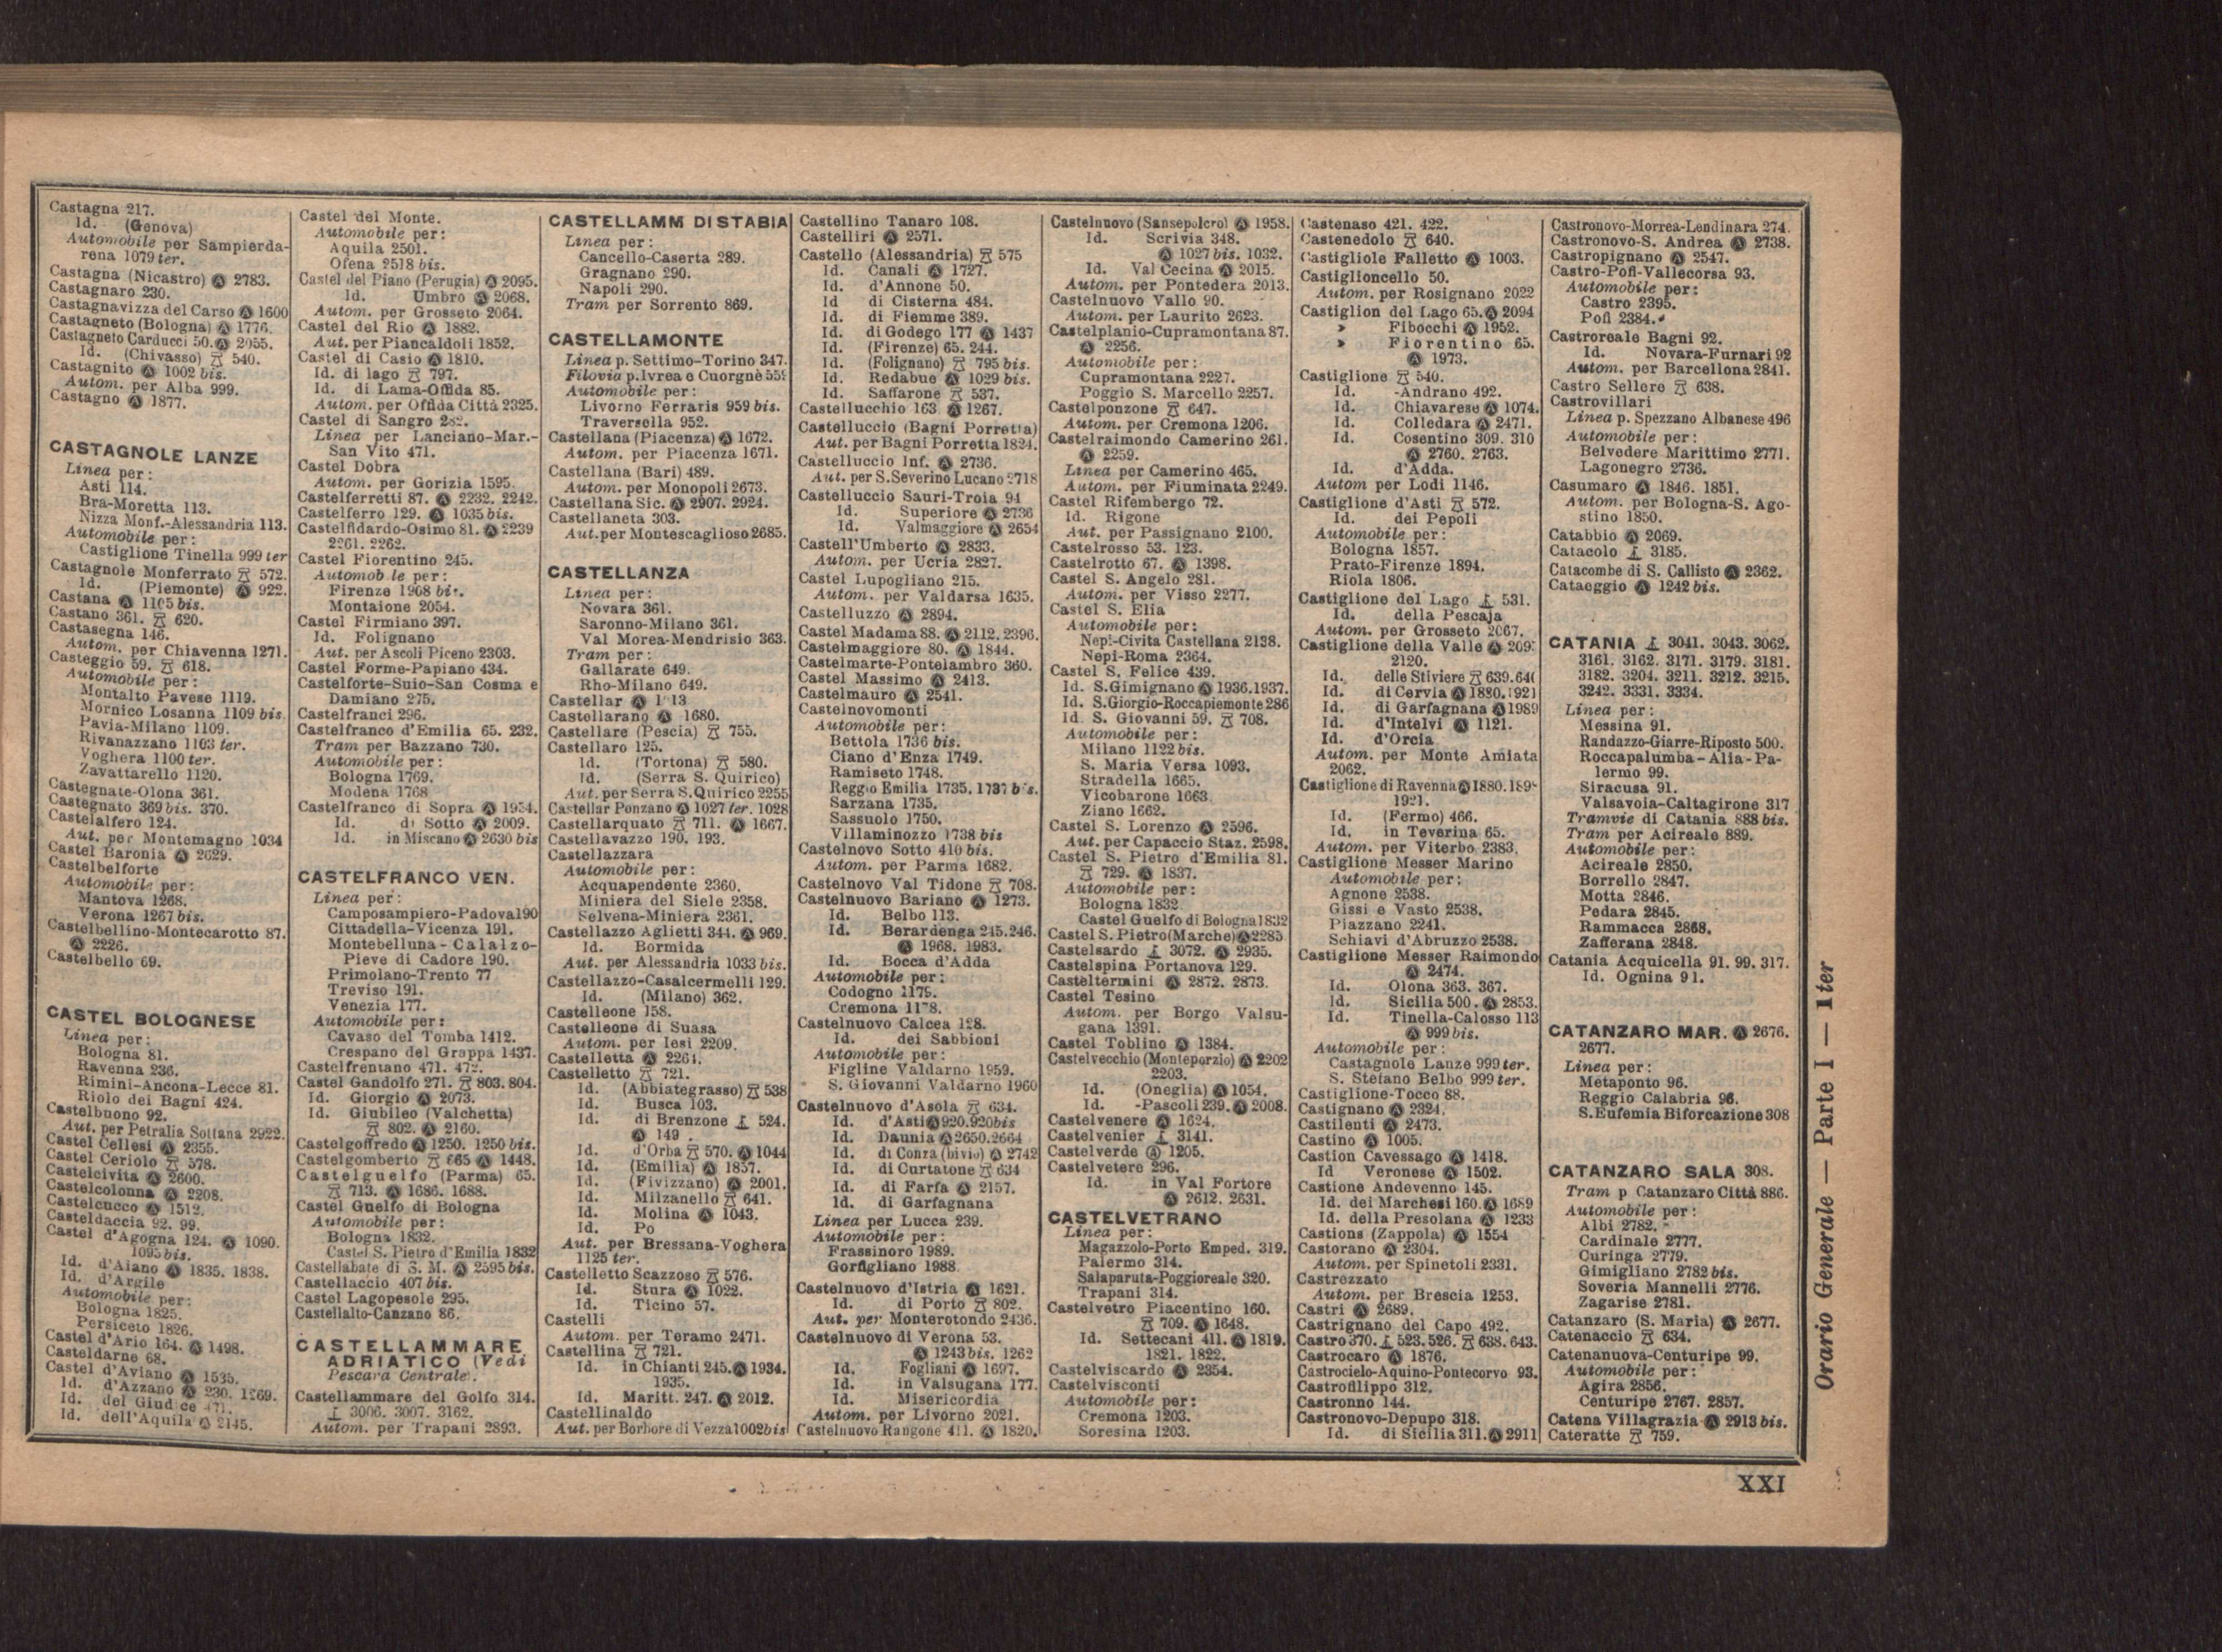 Castagna 217.
Id. (Genova)
Automobile per Sampierda-
rena 1079 ter.
Castagna (Nicastro) Ⓐ 2783.
Castagnaro 230.
Castagnavizza del Carso Ⓐ 1600
Castagneto (Bologna) Ⓐ 1776.
Castagneto Carducci 50. Ⓐ 2055.
Id. (Chivasso) 540.
Castagnito Ⓐ 1002 bis.
Autom. per Alba 999.
Castagno Ⓐ 1877.
CASTAGNOLE LANZE
Linea per:
Asti 114.
Bra-Moretta 113.
Nizza Monf.-Alessandria 113.
Automobile per:
Castiglione Tinella 999 ter
Castagnole Monferrato 572.
Id. (Piemonte) Ⓐ 922.
Castana Ⓐ 1105 bis.
Castano 361. 620.
Castasegna 146.
Autom. per Chiavenna 1271.
Casteggio 59. 618.
Automobile per:
Montalto Pavese 1119.
Mornico Losanna 1109 bis.
Pavia-Milano 1109.
Rivanazzano 1103 ter.
Voghera 1100 ter.
Zavattarello 1120.
Castegnate-Olona 361.
Castegnato 369 bis. 370.
Castelalfero 124.
Aut. per Montemagno 1034
Castel Baronia Ⓐ 2629.
Castelbelforte
Automobile per:
Mantova 1268.
Verona 1267 bis.
Castelbellino-Montecarotto 87.
Ⓐ 2226.
Castelbello 69.
CASTEL BOLOGNESE
Linea per:
Bologna 81.
Ravenna 236.
Rimini-Ancona-Lecce 81.
Riolo dei Bagni 424.
Castelbuono 92.
Aut. per Petralia Sottana 2922.
Castel Cellesi Ⓐ 2355.
Castel Ceriolo 578.
Castelcivita Ⓐ 2600.
Castelcolonna Ⓐ 2208.
Castelcucco Ⓐ 1512.
Casteldaccia 92. 99.
Castel d'Agogna 124. Ⓐ 1090.
1095 bis.
Id. d'Aiano Ⓐ 1835. 1838.
Id. d'Argile
Automobile per:
Bologna 1825.
Persiceto 1826.
Castel d'Ario 164. Ⓐ 1498.
Casteldarne 68.
Castel d'Aviano Ⓐ 1535.
Id. d'Azzano Ⓐ 230. 1269.
Id. del Giudice 471.
Id. dell'Aquila Ⓐ 2145.
Castel del Monte.
Automobile per:
Aquila 2501.
Ofena 2518 bis.
Castel del Piano (Perugia) Ⓐ 2095.
Id. Umbro Ⓐ 2068.
Autom. per Grosseto 2064.
Castel del Rio Ⓐ 1882.
Aut. per Piancaldoli 1852.
Castel di Casio Ⓐ 1810.
Id. di lago 797.
Id. di Lama-Offida 85.
Autom. per Offida Città 2325.
Castel di Sangro
Linea per Lanciano-Mar.-
San Vito 471.
Castel Dobra
Autom. per Gorizia 1595.
Castelferretti 87. Ⓐ 2232. 2242.
Castelferro 129. Ⓐ 1035 bis.
Castelfidardo-Osimo 81. Ⓐ 2239
2261. 2262.
Castel Fiorentino 245.
Automob le per:
Firenze 1968 bis.
Montaione 2054.
Castel Firmiano 397.
Id. Folignano
Aut. per Ascoli Piceno 2303.
Castel Forme-Papiano 434.
Castelforte-Suio-San Cosma e
Damiano 275.
Castelfranci 296.
Castelfranco d'Emilia 65. 232.
Tram per Bazzano 730.
Automobile per:
Bologna 1769.
Modena 1768
Castelfranco di Sopra Ⓐ 1954.
Id. di Sotto Ⓐ 2009.
Id. in Miscano Ⓐ 2630 bis
CASTELFRANCO VEN.
Linea per:
Camposampiero-Padova190
Cittadella-Vicenza 191.
Montebelluna-Calalzo-
Pieve di Cadore 190.
Primolano-Trento 77
Treviso 191.
Venezia 177.
Automobile per:
Cavaso del Tomba 1412.
Crespano del Grappa 1437.
Castelfrentano 471. 472.
Castel Gandolfo 271. 803. 804.
Id. Giorgio Ⓐ 2073.
Id. Giubileo (Valchetta)
802. Ⓐ 2160.
Castelgoffredo Ⓐ 1250. 1250 bis.
Castelgomberto 665 Ⓐ 1448.
Castelguelfo (Parma) 65.
713. Ⓐ 1686. 1688.
Castel Guelfo di Bologna
Automobile per:
Bologna 1832.
Castel S. Pietro d'Emilia 1832
Castellabate di S. M. Ⓐ 2595 bis.
Castellaccio 407 bis.
Castel Lagopesole 295.
Castellalto-Canzano 86.
CASTELLAMMARE
ADRIATICO (Vedi
Pescara Centrale).
Castellammare del Golfo 314.
⚓ 3006. 3007. 3162.
Autom. per Trapani 2893.
CASTELLAMM DI STABIA
Linea per:
Cancello-Caserta 289.
Gragnano 290.
Napoli 290.
Tram per Sorrento 869.
CASTELLAMONTE
Linea p. Settimo-Torino 347.
Filovia p. Ivrea e Cuorgnè 559
Automobile per:
Livorno Ferraris 959 bis.
Traversella 952.
Castellana (Piacenza) Ⓐ 1672.
Autom. per Piacenza 1671.
Castellana (Bari) 489.
Autom. per Monopoli 2673.
Castellana Sic. Ⓐ 2907. 2924.
Castellaneta 303.
Aut. per Montescaglioso 2685.
CASTELLANZA
Linea per:
Novara 361.
Saronno-Milano 361.
Val Morea-Mendrisio 363.
Tram per:
Gallarate 649.
Rho-Milano 649.
Castellar Ⓐ
Castellarano Ⓐ 1680.
Castellare (Pescia) 755.
Castellaro 125.
Id. (Tortona) 580.
Id. (Serra S. Quirico)
Aut. per Serra S. Quirico 2255
Castellar Ponzano Ⓐ 1027 ter. 1028
Castellarquato 711. Ⓐ 1667.
Castellavazzo 190. 193.
Castellazzara
Automobile per:
Acquapendente 2360.
Miniera del Siele 2358.
Selvena-Miniera 2361.
Castellazzo Aglietti 344. Ⓐ 969.
Id. Bormida
Aut. per Alessandria 1033 bis.
Castellazzo-Casalcermelli 129.
Id. (Milano) 362.
Castelleone 158.
Castelleone di Suasa
Autom. per Iesi 2209.
Castelletta Ⓐ 2264.
Castelletto 721.
Id. (Abbiategrasso) 538
Id. Busca 103.
Id. di Brenzone ⚓ 524.
Ⓐ 149 .
Id. d'Orba 570. Ⓐ 1044
Id. (Emilia) Ⓐ 1857.
Id. (Fivizzano) Ⓐ 2001.
Id. Milzanello 641.
Id. Molina Ⓐ 1043.
Id. Po
Aut. per Bressana-Voghera
1125 ter.
Castelletto Scazzoso 576.
Id. Stura Ⓐ 1022.
Id. Ticino 57.
Castelli
Autom. per Teramo 2471.
Castellina 721.
Id. in Chianti 245. Ⓐ 1934.
1935.
Id. Maritt. 247. Ⓐ 2012.
Castellinaldo
Aut. per Borbore di Vezza1002bis
Castellino Tanaro 108.
Castelliri Ⓐ 2571.
Castello (Alessandria) 575
Id. Canali Ⓐ 1727.
Id. d'Annone 50.
Id di Cisterna 484.
Id. di Fiemme 389.
Id. di Godego 177 Ⓐ 1437
Id. (Firenze) 65. 244.
Id. (Folignano) 795 bis.
Id. Redabue Ⓐ 1029 bis.
Id. Saffarone 537.
Castellucchio 163 Ⓐ 1267.
Castelluccio (Bagni Porretta)
Aut. per Bagni Porretta 1824.
Castelluccio Inf. Ⓐ 2736.
Aut. per S. Severino Lucano 2718
Castelluccio Sauri-Troia 94
Id. Superiore Ⓐ 2736
Id. Valmaggiore Ⓐ 2654
Castell'Umberto Ⓐ 2833.
Autom. per Ucria 2827.
Castel Lupogliano 215.
Autom. per Valdarsa 1635.
Castelluzzo Ⓐ 2894.
Castel Madama 88. Ⓐ 2112. 2396.
Castelmaggiore 80. Ⓐ 1844.
Castelmarte-Pontelambro 360.
Castel Massimo Ⓐ 2413.
Castelmauro Ⓐ 2541.
Castelnovomonti
Automobile per:
Bettola 1736 bis.
Ciano d'Enza 1749.
Ramiseto 1748.
Reggio Emilia 1735. 1737 bis.
Sarzana 1735.
Sassuolo 1750.
Villaminozzo 1738 bis
Castelnovo Sotto 410 bis.
Autom. per Parma 1682.
Castelnovo Val Tidone 708.
Castelnuovo Bariano Ⓐ 1273.
Id. Belbo 113.
Id. Berardenga 245.246.
Ⓐ 1968. 1983.
Id. Bocca d'Adda
Automobile per:
Codogno 1179.
Cremona 1178.
Castelnuovo Calcea 128.
Id. dei Sabbioni
Automobile per:
Figline Valdarno 1959.
S. Giovanni Valdarno 1960
Castelnuovo d'Asola 634.
Id. d'Asti Ⓐ 920.920bis
Id. Daunia Ⓐ 2650.2664
Id. di Conza (bivio) Ⓐ 2742
Id. di Curtatone 634
Id. di Farfa Ⓐ 2157.
Id. di Garfagnana
Linea per Lucca 239.
Automobile per:
Frassinoro 1989.
Gorfigliano 1988
Castelnuovo d'Istria Ⓐ 1621.
Id. di Porto 802.
Aut. per Monterotondo 2436.
Castelnuovo di Verona 53.
Ⓐ 1243 bis. 1262
Id. Fogliani Ⓐ 1697.
Id. in Valsugana 177.
Id. Misericordia
Autom. per Livorno 2021.
Castelnuovo Rangone 411. Ⓐ 1820.
Castelnuovo (Sansepolcro) Ⓐ 1958.
Id. Scrivia 348.
Ⓐ 1027 bis. 1032.
Id. Val Cecina Ⓐ 2015.
Autom. per Pontedera 2013.
Castelnuovo Vallo 90.
Autom. per Laurito 2623.
Castelplanio-Cupramontana 87.
Ⓐ 2256.
Automobile per:
Cupramontana 2227.
Poggio S. Marcello 2257.
Castelponzone 647.
Autom. per Cremona 1206.
Castelraimondo Camerino 261.
Ⓐ 2259.
Linea per Camerino 465.
Autom. per Fiuminata 2249.
Castel Rifembergo 72.
Id. Rigone
Aut. per Passignano 2100.
Castelrosso 53. 123.
Castelrotto 67. Ⓐ 1398.
Castel S. Angelo 281.
Autom. per Visso 2277.
Castel S. Elia
Automobile per:
Nepi-Civita Castellana 2138.
Nepi-Roma 2364.
Castel S. Felice 439.
Id. S. Gimignano Ⓐ 1936.1937.
Id. S. Giorgio-Roccapiemonte 286
Id. S. Giovanni 59. 708.
Automobile per:
Milano 1122 bis.
S. Maria Versa 1093.
Stradella 1665.
Vicobarone 1663.
Ziano 1662.
Castel S. Lorenzo Ⓐ 2596.
Aut. per Capaccio Staz. 2598.
Castel S. Pietro d'Emilia 81.
729. Ⓐ 1837.
Automobile per:
Bologna 1832
Castel Guelfo di Bologna1832
Castel S. Pietro (Marche) Ⓐ 2285
Castelsardo ⚓ 3072. Ⓐ 2935.
Castelspina Portanova 129.
Casteltermini Ⓐ 2872. 2873.
Castel Tesino
Autom. per Borgo Valsu-
gana 1391.
Castel Toblino Ⓐ 1384.
Castelvecchio (Monteporzio) Ⓐ 2202
2203.
Id. (Oneglia) Ⓐ 1054.
Id. -Pascoli 239. Ⓐ 2008.
Castelvenere Ⓐ 1624.
Castelvenier ⚓ 3141.
Castelverde Ⓐ 1205.
Castelvetere 296.
Id. in Val Fortore
Ⓐ 2612. 2631.
CASTELVETRANO
Linea per:
Magazzolo-Porto Emped. 319.
Palermo 314.
Salaparuta-Poggioreale 320.
Trapani 314.
Castelvetro Piacentino 160.
709. Ⓐ 1648.
Id. Settecani 411. Ⓐ 1819.
1821. 1822.
Castelviscardo Ⓐ 2354.
Castelvisconti
Automobile per:
Cremona 1203.
Soresina 1203.
Castenaso 421. 422.
Castenedolo 640.
Castigliole Falletto Ⓐ 1003.
Castiglioncello 50.
Autom. per Rosignano 2022
Castiglion del Lago 65. Ⓐ 2094
» Fibocchi Ⓐ 1952.
» Fiorentino 65.
Ⓐ 1973.
Castiglione 540.
Id. -Andrano 492.
Id. Chiavarese Ⓐ 1074.
Id. Colledara Ⓐ 2471.
Id. Cosentino 309. 310
Ⓐ 2760. 2763.
Id. d'Adda.
Autom per Lodi 1146.
Castiglione d'Asti 572.
Id. dei Pepoli
Automobile per:
Bologna 1857.
Prato-Firenze 1894.
Riola 1806.
Castiglione del Lago ⚓ 531.
Id. della Pescaja
Autom. per Grosseto 2067.
Castiglione della Valle Ⓐ
2120.
Id. delle Stiviere 639.640
Id. di Cervia Ⓐ 1880.1921
Id. di Garfagnana Ⓐ 1989
Id. d'Intelvi Ⓐ 1121.
Id. d'Orcia
Autom. per Monte Amiata
2062.
Castiglione di Ravenna Ⓐ 1880.
1921.
Id. (Fermo) 466.
Id. in Teverina 65.
Autom. per Viterbo 2383.
Castiglione Messer Marino
Automobile per:
Agnone 2538.
Gissi e Vasto 2538.
Piazzano 2241.
Schiavi d'Abruzzo 2538.
Castiglione Messer Raimondo
Ⓐ 2474.
Id. Olona 363. 367.
Id. Sicilia 500. Ⓐ 2853.
Id. Tinella-Calosso 113
Ⓐ 999 bis.
Automobile per:
Castagnole Lanze 999 ter.
S. Stefano Belbo 999 ter.
Castiglione-Tocco 88.
Castignano Ⓐ 2324.
Castilenti Ⓐ 2473.
Castino Ⓐ 1005.
Castion Cavessago Ⓐ 1418.
Id Veronese Ⓐ 1502.
Castione Andevenno 145.
Id. dei Marchesi 160. Ⓐ 1689
Id. della Presolana Ⓐ 1233
Castions (Zappola) Ⓐ 1554
Castorano Ⓐ 2304.
Autom. per Spinetoli 2331.
Castrezzato
Autom. per Brescia 1253.
Castri Ⓐ 2689.
Castrignano del Capo 492.
Castro 370. ⚓ 523. 526. 638. 643.
Castrocaro Ⓐ 1876.
Castrocielo-Aquino-Pontecorvo 93.
Castrofilippo 312.
Castronno 144.
Castronovo-Depupo 318.
Id. di Sicilia 311. Ⓐ 2911
Castronovo-Morrea-Lendinara 274.
Castronovo-S. Andrea Ⓐ 2738.
Castropignano Ⓐ 2547.
Castro-Pofi-Vallecorsa 93.
Automobile per:
Castro 2395.
Pofi 2384.
Castroreale Bagni 92.
Id. Novara-Furnari 92
Autom. per Barcellona 2841.
Castro Sellere 638.
Castrovillari
Linea p. Spezzano Albanese 496
Automobile per:
Belvedere Marittimo 2771.
Lagonegro 2736.
Casumaro Ⓐ 1846. 1851.
Autom. per Bologna-S. Ago-
stino 1850.
Catabbio Ⓐ 2069.
Catacolo ⚓ 3185.
Catacombe di S. Callisto Ⓐ 2362.
Cataeggio Ⓐ 1242 bis.
CATANIA ⚓ 3041. 3043. 3062.
3161. 3162. 3171. 3179. 3181.
3182. 3204. 3211. 3212. 3215.
3242. 3331. 3334.
Linea per:
Messina 91.
Randazzo-Giarre-Riposto 500.
Roccapalumba-Alia-Pa-
lermo 99.
Siracusa 91.
Valsavoia-Caltagirone 317
Tramvie di Catania 888 bis.
Tram per Acireale 889.
Automobile per:
Acireale 2850.
Borrello 2847.
Motta 2846.
Pedara 2845.
Rammacca 2868.
Zafferana 2848.
Catania Acquicella 91. 99. 317.
Id. Ognina 91.
CATANZARO MAR. Ⓐ 2676.
2677.
Linea per:
Metaponto 96.
Reggio Calabria 96.
S. Eufemia Biforcazione 308
CATANZARO SALA 308.
Tram p Catanzaro Città 886.
Automobile per:
Albi 2782.
Cardinale 2777.
Curinga 2779.
Gimigliano 2782 bis.
Soveria Mannelli 2776.
Zagarise 2781.
Catanzaro (S. Maria) Ⓐ 2677.
Catenaccio 634.
Catenanuova-Centuripe 99.
Automobile per:
Agira 2856.
Centuripe 2767. 2857.
Catena Villagrazia Ⓐ 2913 bis.
Cateratte 759.
Orario Generale — Parte I — 1 ter
XXI